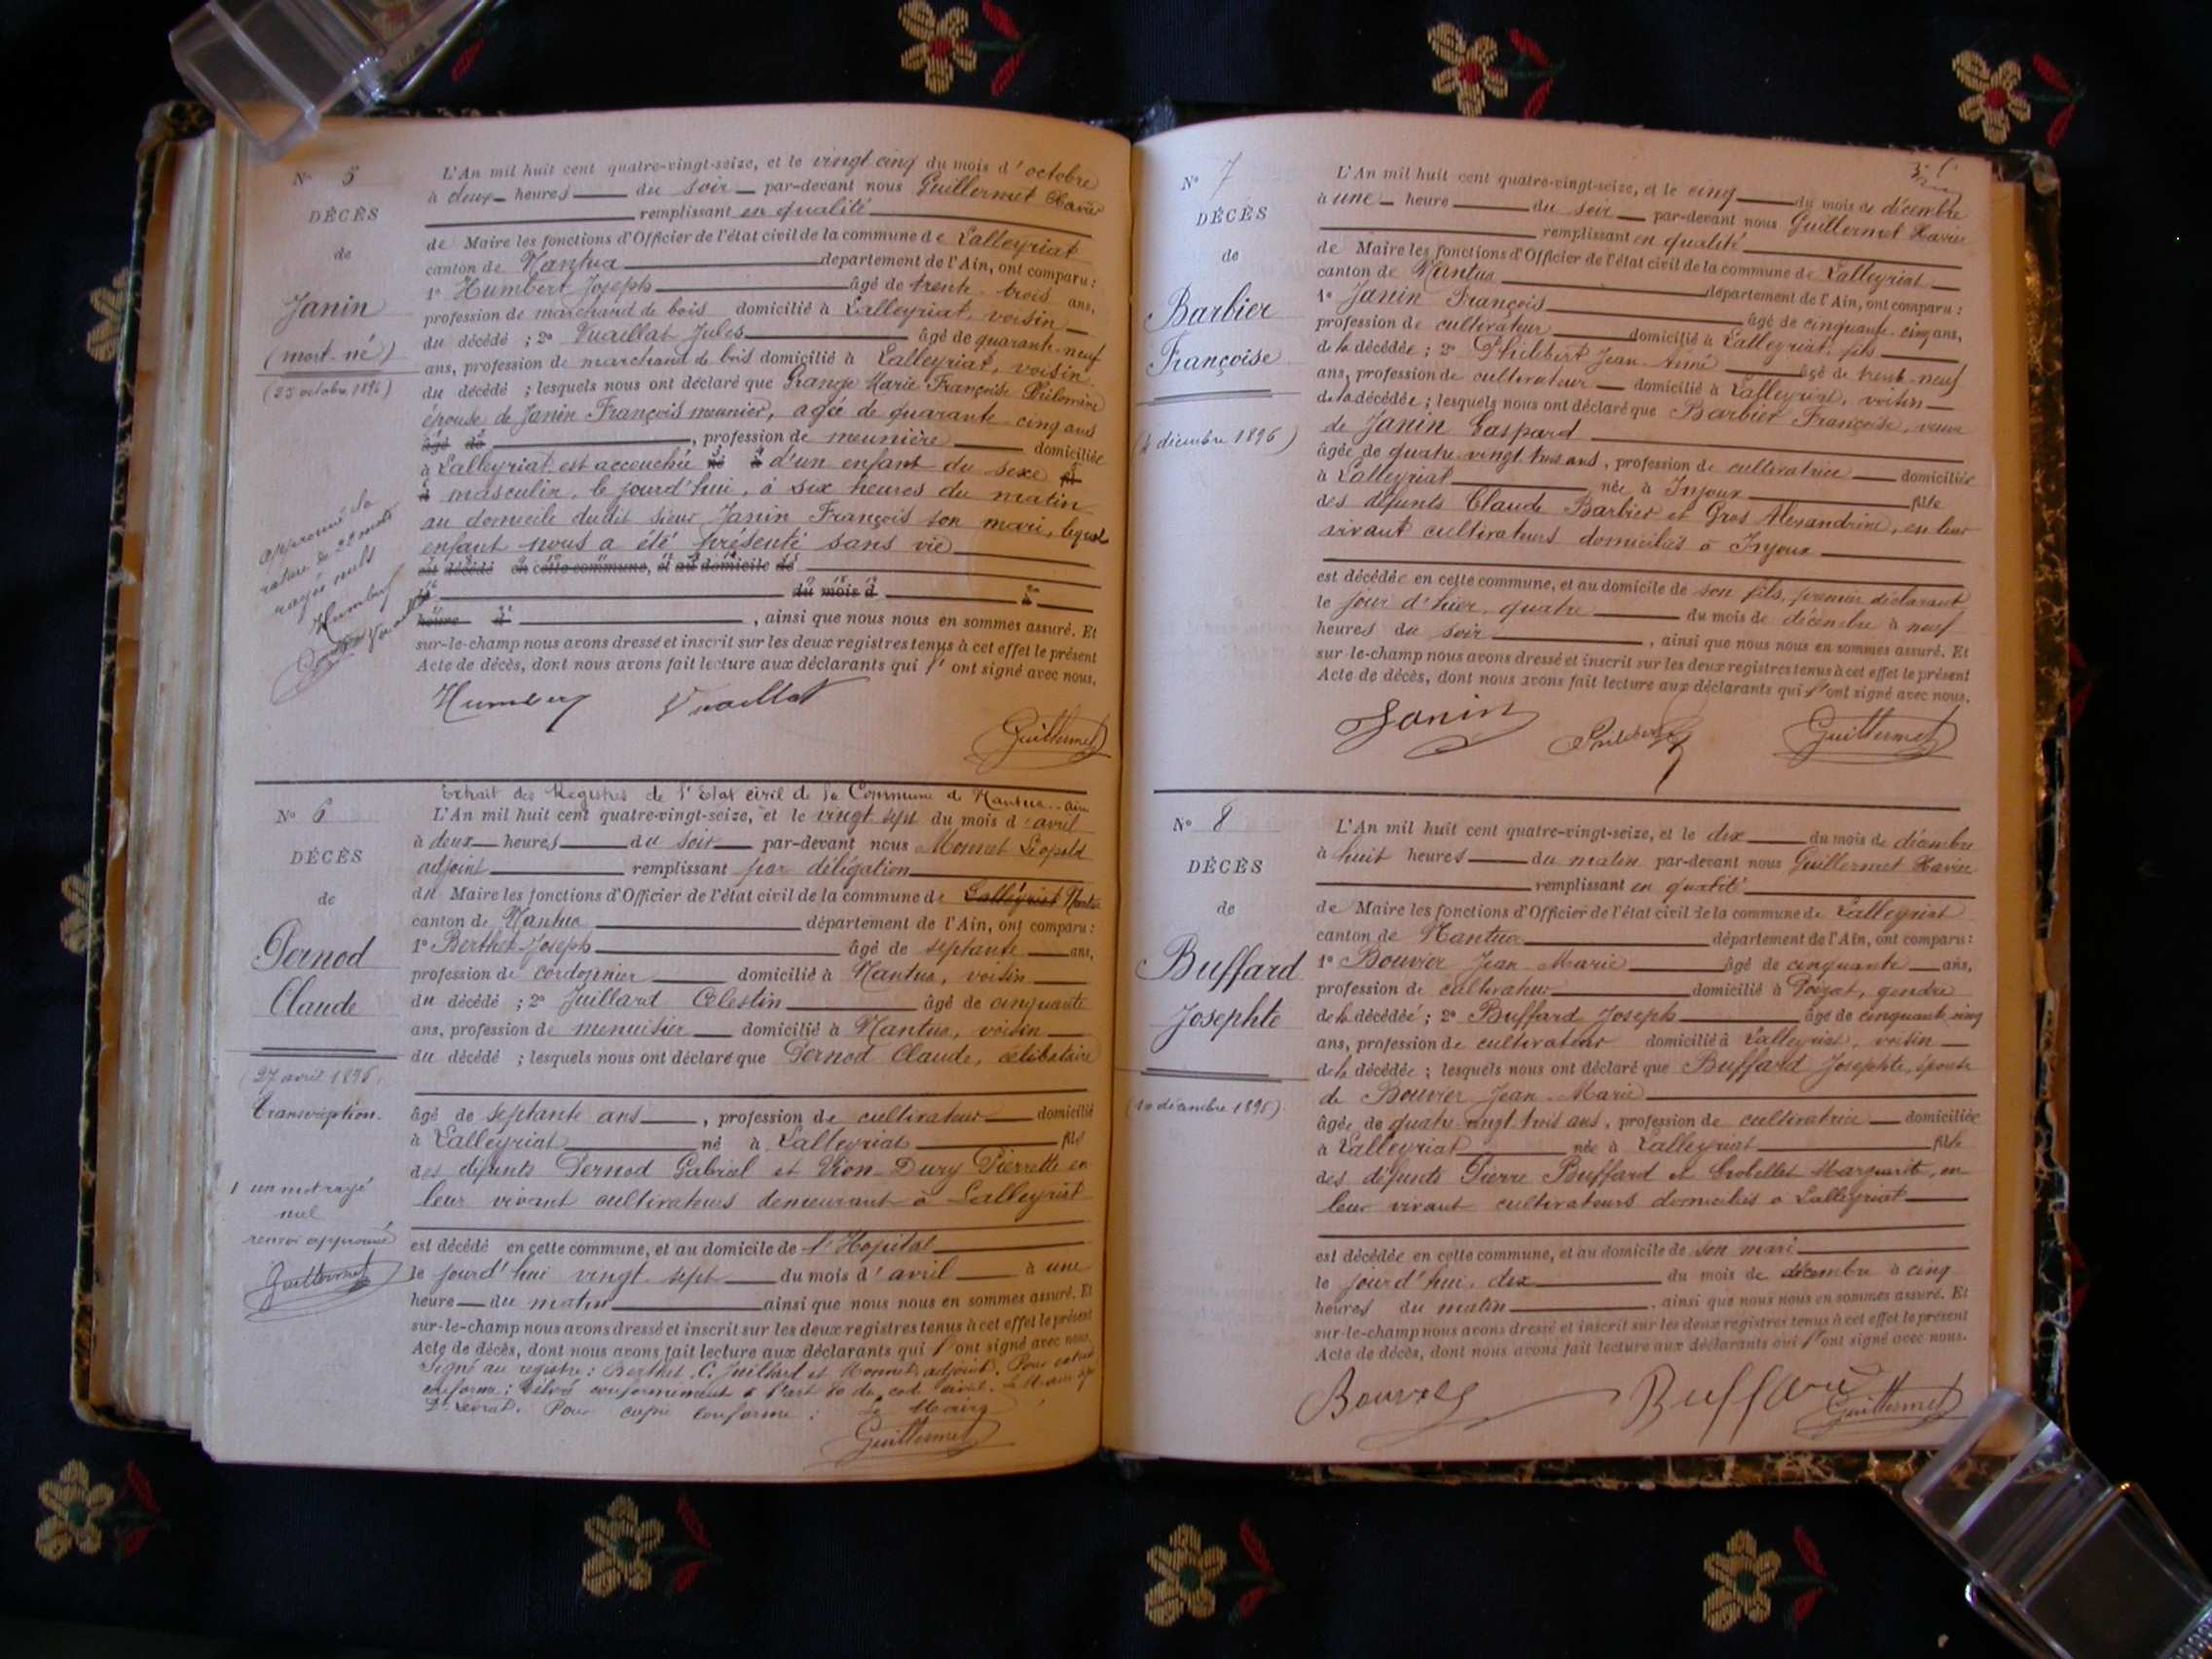 N° 5
DÉCÈS
de
Janin
(mort-né)
(25 octobre 1896)
approuvé la
rature de 22 mots
rayés nuls
Humbert
L'An mil huit cent quatre-vingt-seize, et le vingt cinq du mois d'octobre
à deux heures du soir par-devant nous Guillermet Xavier
remplissant en qualité
de Maire les fonctions d'Officier de l'état civil de la commune de Lalleyriat
canton de Nantua département de l'Ain, ont comparu :
1° Humbert Joseph âgé de trente-trois ans,
profession de marchand de bois domicilié à Lalleyriat, voisin
du décédé ; 2° Vuaillat Jules âgé de quarante-neuf
ans, profession de marchand de bois domicilié à Lalleyriat, voisin
du décédé ; lesquels nous ont déclaré que Grange Marie Françoise Philomène
épouse de Janin François meunier, agée de quarante cinq ans
âgé de , profession de meunière domiciliée
à Lalleyriat est accouchée né à d'un enfant du sexe fil
à masculin, le jourd'hui, à six heures du matin
au domicile dudit sieur Janin François son mari, lequel
enfant nous a été présenté sans vie
est décédé en cette commune, et au domicile de
le du mois d à
heure d , ainsi que nous nous en sommes assuré. Et
sur-le-champ nous avons dressé et inscrit sur les deux registres tenus à cet effet le présent
Acte de décès, dont nous avons fait lecture aux déclarants qui l'ont signé avec nous.
Humbert Vuaillat
Guillermet
N° 6
DÉCÈS
de
Pernod
Claude
(27 avril 1896.
transcription.
1 un mot rayé
nul
renvoi approuvé
Guillermet
Extrait des Registres de l'Etat civil de la Commune de Nantua - Ain
L'An mil huit cent quatre-vingt-seize, et le vingt sept du mois d'avril
à deux heures du soir par-devant nous Monnet Léopold
adjoint remplissant par délégation
du Maire les fonctions d'Officier de l'état civil de la commune de Lalleyriat Nantua
canton de Nantua département de l'Ain, ont comparu :
1° Berthet Joseph âgé de septante ans,
profession de cordonnier domicilié à Nantua, voisin
du décédé ; 2° Juillard Célestin âgé de cinquante
ans, profession de menuisier domicilié à Nantua, voisin
du décédé ; lesquels nous ont déclaré que Pernod Claude, célibataire
âgé de septante ans , profession de cultivateur domicilié
à Lalleyriat né à Lalleyriat fils
des défunts Pernod Gabriel et Vion-Dury Pierrette en
leur vivant cultivateurs demeurant à Lalleyriat
est décédé en cette commune, et au domicile de l'Hopital
le jourd'hui vingt-sept du mois d'avril à une
heure du matin ainsi que nous nous en sommes assuré. Et
sur-le-champ nous avons dressé et inscrit sur les deux registres tenus à cet effet le présent
Acte de décès, dont nous avons fait lecture aux déclarants qui l'ont signé avec nous.
Signé au registre : Berthet, C. Juillard et Monnet adjoint. Pour extrait
conforme : Délivré conformément à l'art 80 du code civil. Le Maire
Pour copie conforme : Le Maire
Guillermet
N° 7
DÉCÈS
de
Barbier
Françoise
(4 décembre 1896)
L'An mil huit cent quatre-vingt-seize, et le cinq du mois de décembre
à une heure du soir par-devant nous Guillermet Xavier
remplissant en qualité
de Maire les fonctions d'Officier de l'état civil de la commune de Lalleyriat
canton de Nantua département de l'Ain, ont comparu :
1° Janin François âgé de cinquante-cinq ans,
profession de cultivateur domicilié à Lalleyriat, fils
de la décédée ; 2° Philibert Jean-Aimé âgé de trente-neuf
ans, profession de cultivateur domicilié à Lalleyriat, voisin
de la décédée ; lesquels nous ont déclaré que Barbier Françoise, veuve
de Janin Gaspard
âgée de quatre-vingt-trois ans, profession de cultivatrice domiciliée
à Lalleyriat née à Injoux fille
des défunts Claude Barbier et Gros Alexandrine, en leur
vivant cultivateurs domiciliés à Injoux
est décédée en cette commune, et au domicile de son fils, premier déclarant
le jour d'hier, quatre du mois de décembre à neuf
heures du soir , ainsi que nous nous en sommes assuré. Et
sur-le-champ nous avons dressé et inscrit sur les deux registres tenus à cet effet le présent
Acte de décès, dont nous avons fait lecture aux déclarants qui l'ont signé avec nous.
Janin Philibert Guillermet
N° 8
DÉCÈS
de
Buffard
Josephte
(10 décembre 1896)
L'An mil huit cent quatre-vingt-seize, et le dix du mois de décembre
à huit heures du matin par-devant nous Guillermet Xavier
remplissant en qualité
de Maire les fonctions d'Officier de l'état civil de la commune de Lalleyriat
canton de Nantua département de l'Ain, ont comparu :
1° Bouvier Jean-Marie âgé de cinquante ans,
profession de cultivateur domicilié à Poizat, gendre
de la décédée ; 2° Buffard Joseph âgé de cinquante cinq
ans, profession de cultivateur domicilié à Lalleyriat, voisin
de la décédée ; lesquels nous ont déclaré que Buffard Josephte, épouse
de Bouvier Jean-Marie
âgée de quatre-vingt-trois ans, profession de cultivatrice domiciliée
à Lalleyriat née à Lalleyriat fille
des défunts Pierre Buffard et Marguerite, en
leur vivant cultivateurs domiciliés à Lalleyriat
est décédée en cette commune, et au domicile de son mari
le jourd'hui, dix du mois de décembre à cinq
heures du matin , ainsi que nous nous en sommes assuré. Et
sur-le-champ nous avons dressé et inscrit sur les deux registres tenus à cet effet le présent
Acte de décès, dont nous avons fait lecture aux déclarants qui l'ont signé avec nous.
Bouvier Buffard Guillermet